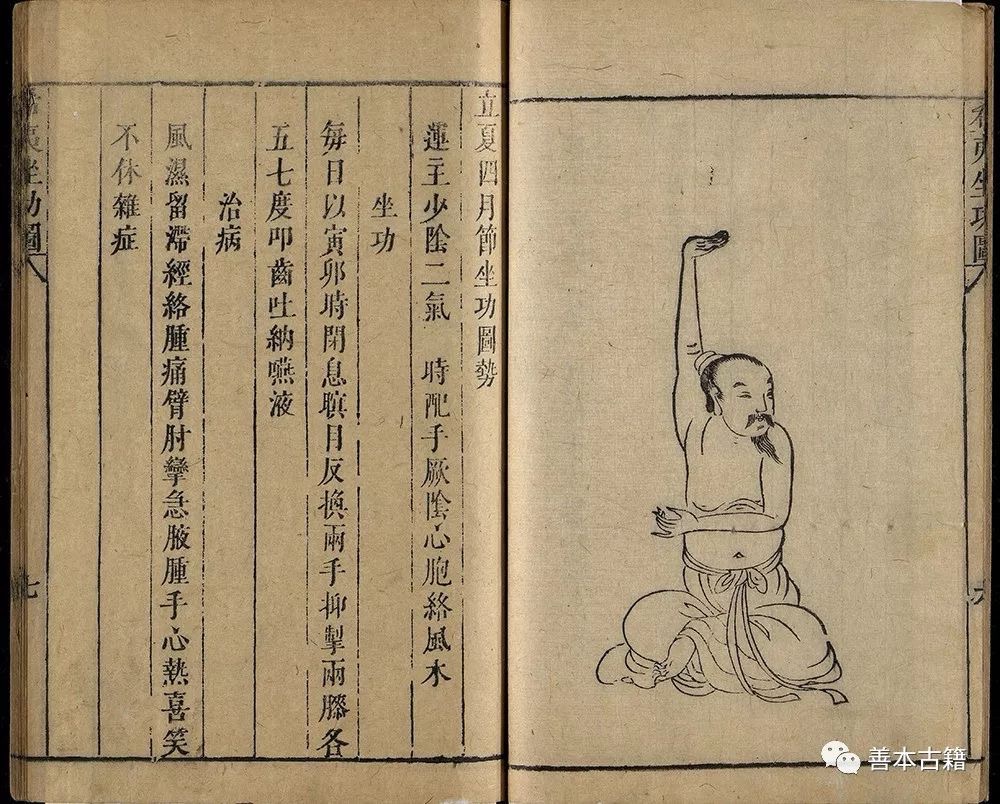 夷坐功圖
六
立夏四月節坐功圖勢
運主少陰二氣　時配手厥陰心胞絡風木
坐功
每日以寅卯時閉息瞑目反換兩手抑掣兩膝各
五七度叩齒吐納嚥液
治病
風濕留滯經絡腫痛臂肘攣急腋腫手心熱喜笑
不休雜症
夷坐功圖
七
善本古籍